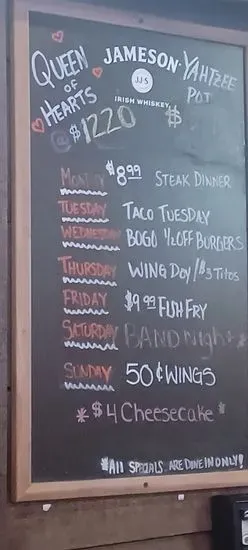 QUEEN OF HEARTS
@ $1220
JAMESON
JJ&S
IRISH WHISKEY
YAHTZEE POT
$
MONDAY $8.99 STEAK DINNER
TUESDAY TACO TUESDAY
WEDNESDAY BOGO ½ OFF BURGERS
THURSDAY WING DOY/$3 TITOS
FRIDAY $9.99 FISH FRY
SATURDAY BAND Night
SUNDAY 50¢ WINGS
* $4 Cheesecake *
*All SPECIALS ARE DINE IN ONLY!